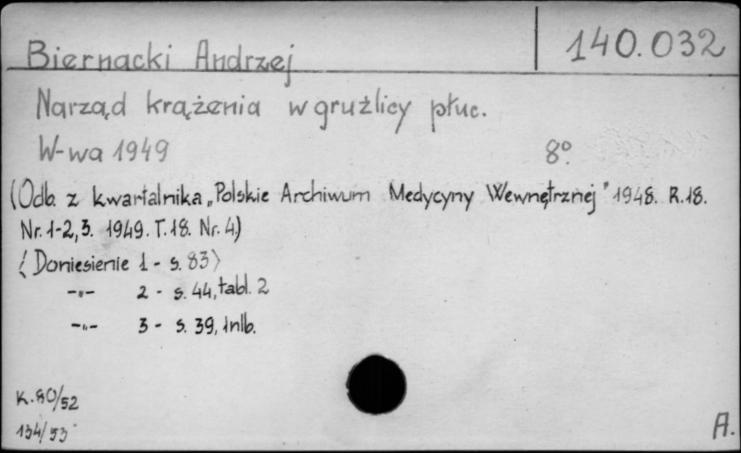 Biernacki Andrzej 140.032
Narząd krążenia w gruźlicy płuc.
W-wa 1949 8º
(Odb. z kwartalnika „Polskie Archiwum Medycyny Wewnętrznej" 1948. R.18.
Nr. 1-2, 3. 1949. T.18. Nr. 4)
⟨Doniesienie 1 - s. 83⟩
-„- 2 - s. 44, tabl. 2
-„- 3 - s. 39, 1nlb.
K. 80/52
134/53
A.